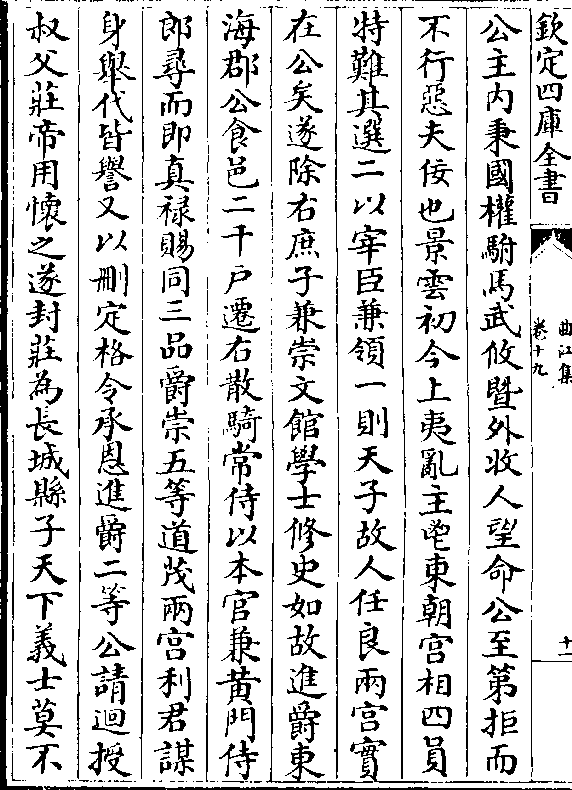 欽定四庫全書
曲江集
卷十九
十一
公主内秉國權駙馬武攸暨外收人望命公至第拒而
不行惡夫佞也景雲初今上夷亂主鬯東朝宫相四員
特難其選二以宰臣兼領一則天子故人任良兩宫實
在公矣遂除右庶子兼崇文館學士修史如故進爵東
海郡公食邑二千户遷右散騎常侍以本官兼黄門侍
郎尋而即真禄賜同三品爵崇五等道茂兩宫利君謀
身舉代皆譽又以刪定格令承恩進爵二等公請迴授
叔父莊帝用懷之遂封莊為長城縣子天下義士莫不